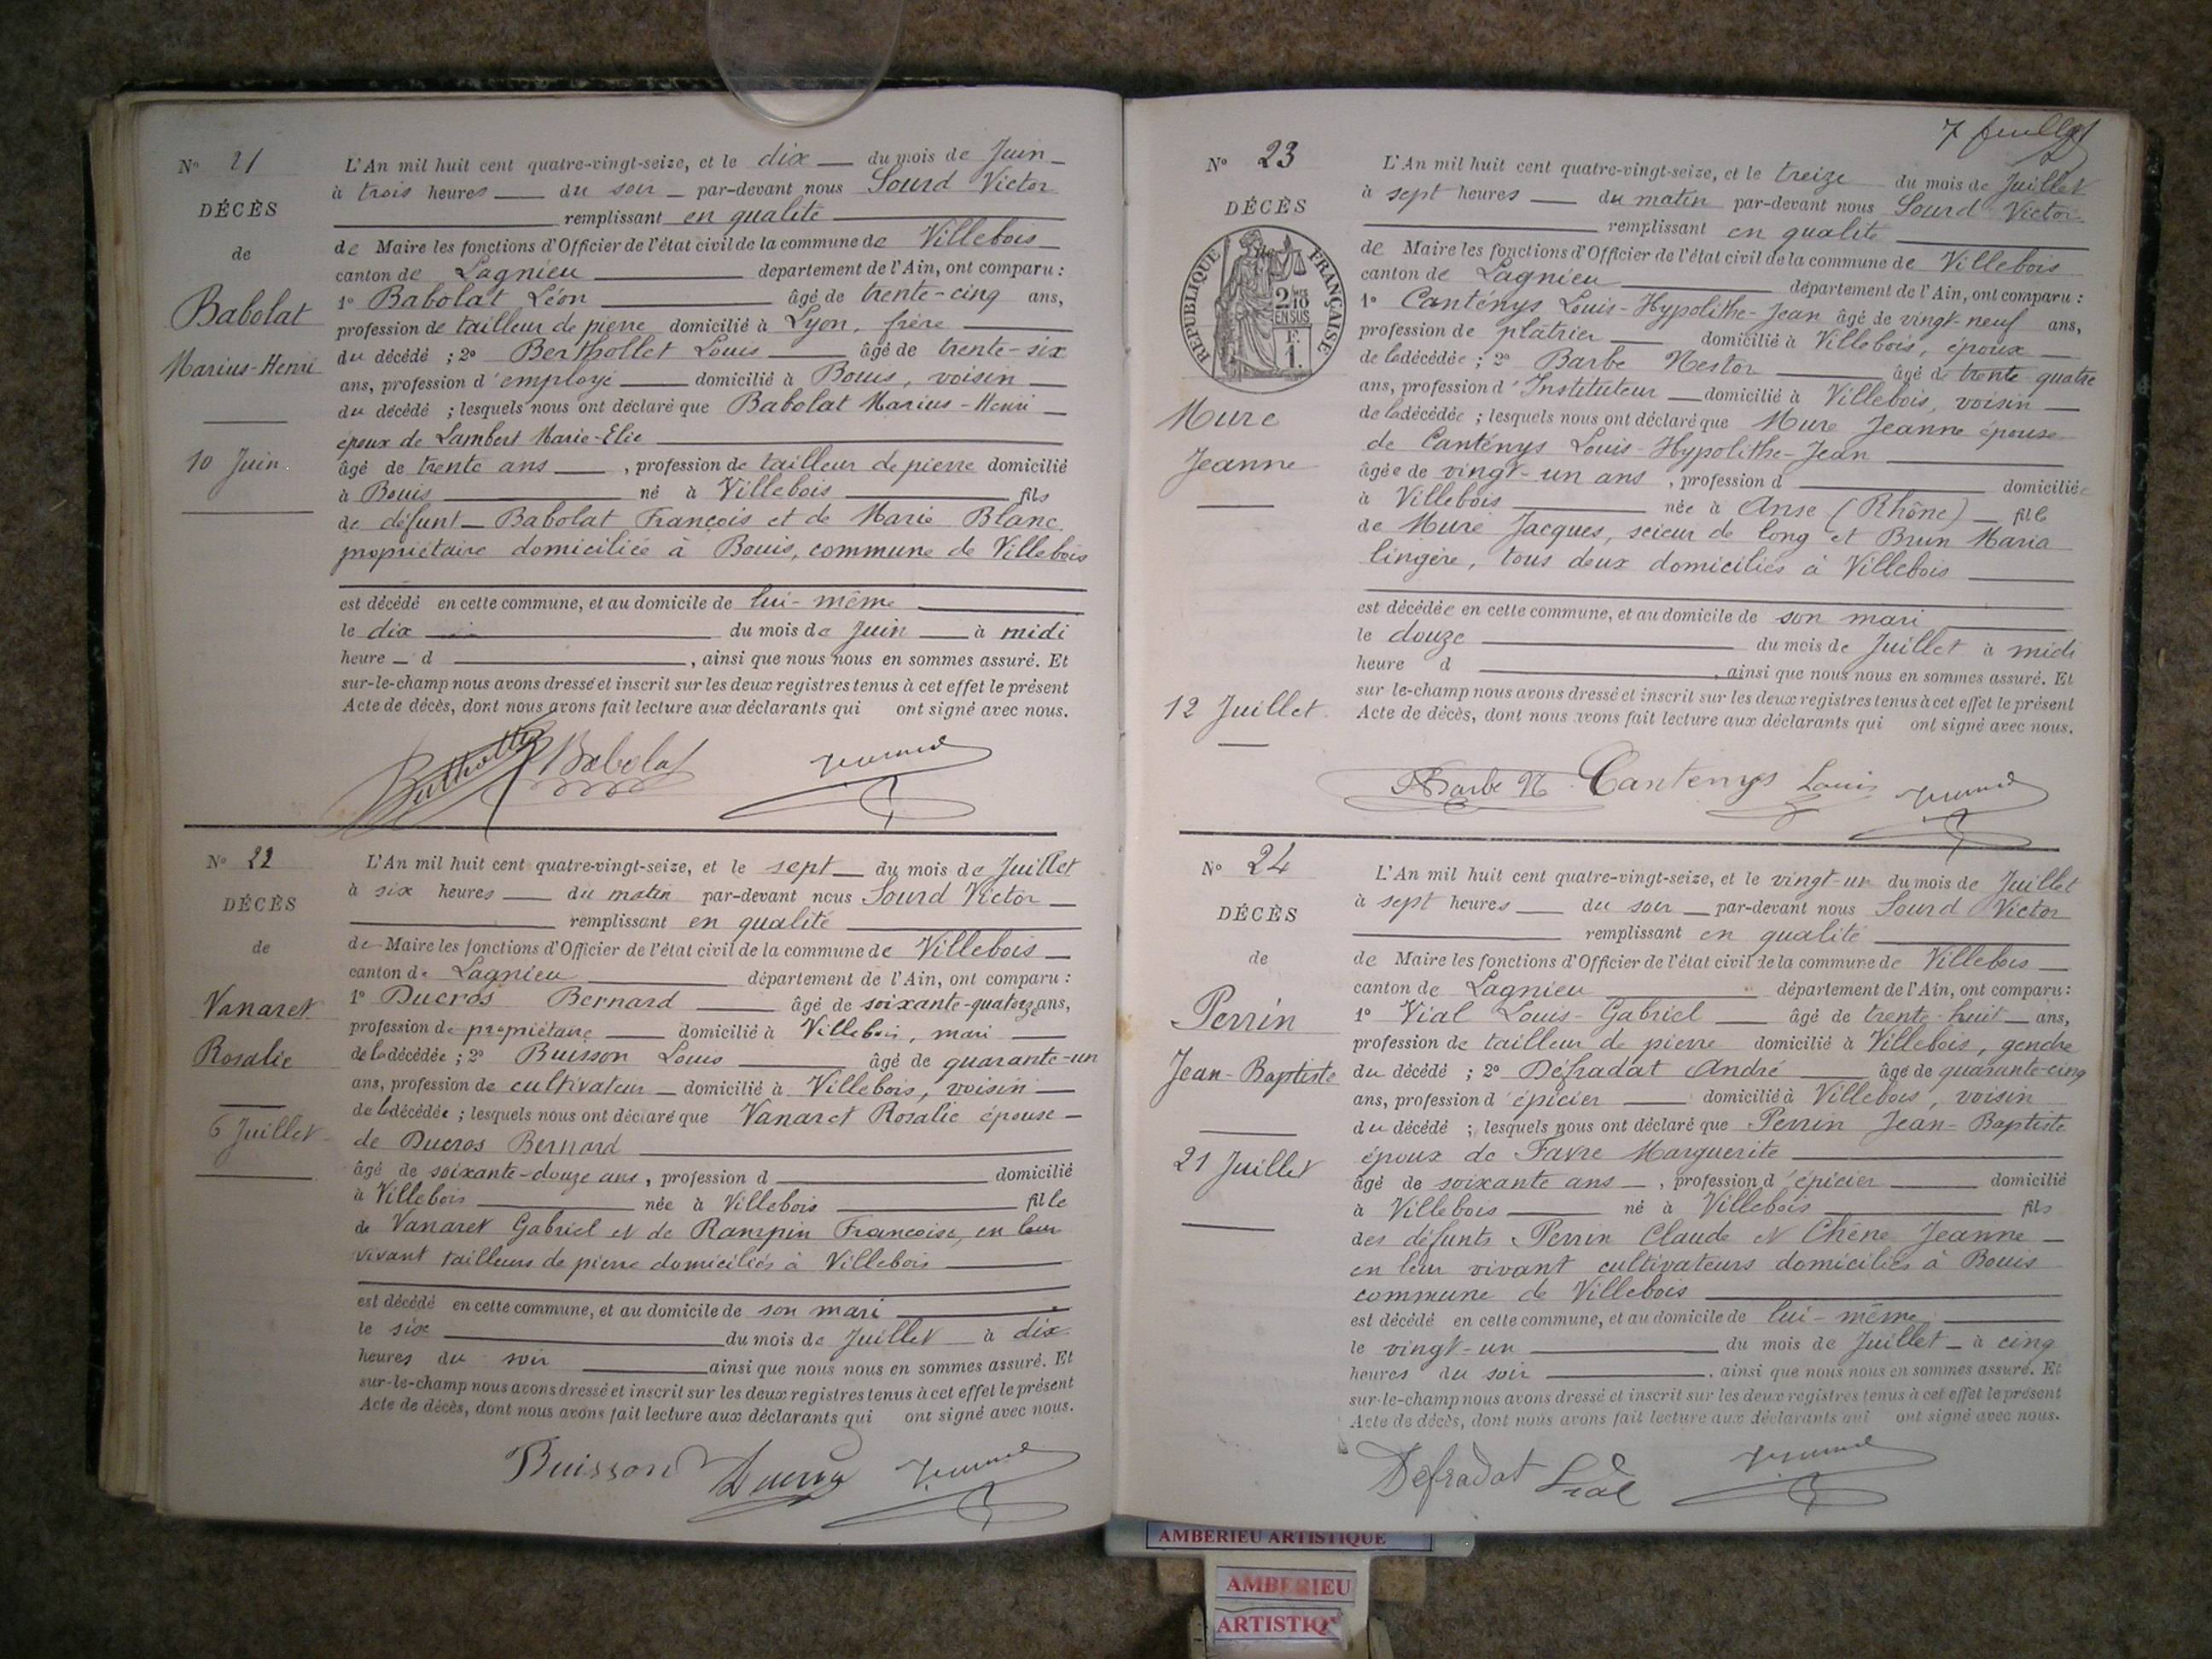 N° 21
DÉCÈS
de
Babolat
Marius-Henri
10 Juin.
L'An mil huit cent quatre-vingt-seize, et le dix du mois de Juin
à trois heures du soir par-devant nous Sourd Victor
remplissant en qualité
de Maire les fonctions d'Officier de l'état civil de la commune de Villebois
canton de Lagnieu département de l'Ain, ont comparu :
1° Babolat Léon âgé de trente-cinq ans,
profession de tailleur de pierre domicilié à Lyon, frère
du décédé ; 2° Berthollet Louis âgé de trente-six
ans, profession d'employé domicilié à Bouis, voisin
du décédé ; lesquels nous ont déclaré que Babolat Marius-Henri
époux de Lambert Marie-Elie
âgé de trente ans, profession de tailleur de pierre domicilié
à Bouis né à Villebois fils
de défunt Babolat François et de Marie Blanc
propriétaire domiciliée à Bouis, commune de Villebois
est décédé en cette commune, et au domicile de lui-même
le dix du mois de Juin à midi
heure d , ainsi que nous nous en sommes assuré. Et
sur-le-champ nous avons dressé et inscrit sur les deux registres tenus à cet effet le présent
Acte de décès, dont nous avons fait lecture aux déclarants qui ont signé avec nous.
Babolat
N° 22
DÉCÈS
de
Vanaret
Rosalie
6 Juillet
L'An mil huit cent quatre-vingt-seize, et le sept du mois de Juillet
à six heures du matin par-devant nous Sourd Victor
remplissant en qualité
de Maire les fonctions d'Officier de l'état civil de la commune de Villebois
canton de Lagnieu département de l'Ain, ont comparu :
1° Ducros Bernard âgé de soixante-quatorze ans,
profession de propriétaire domicilié à Villebois, mari
de la décédée ; 2° Buisson Louis âgé de quarante-un
ans, profession de cultivateur domicilié à Villebois, voisin
de la décédée ; lesquels nous ont déclaré que Vanaret Rosalie épouse
de Ducros Bernard
âgé de soixante-douze ans, profession d domicilié
à Villebois née à Villebois fille
de Vanaret Gabriel et de Rampin Francoise, en leur
vivant tailleurs de pierre domiciliés à Villebois
est décédé en cette commune, et au domicile de son mari
le six du mois de Juillet à dix
heures du soir ainsi que nous nous en sommes assuré. Et
sur-le-champ nous avons dressé et inscrit sur les deux registres tenus à cet effet le présent
Acte de décès, dont nous avons fait lecture aux déclarants qui ont signé avec nous.
Buisson Ducros
7
N° 23
DÉCÈS
RÉPUBLIQUE FRANÇAISE
2/10 EN SUS
F. 1.
Mure
Jeanne
12 Juillet.
L'An mil huit cent quatre-vingt-seize, et le treize du mois de Juillet
à sept heures du matin par-devant nous Sourd Victor
remplissant en qualité
de Maire les fonctions d'Officier de l'état civil de la commune de Villebois
canton de Lagnieu département de l'Ain, ont comparu :
1° Canténys Louis-Hypolithe-Jean âgé de vingt-neuf ans,
profession de platrier domicilié à Villebois, époux
de la décédée ; 2° Barbe Nestor âgé de trente quatre
ans, profession d'Instituteur domicilié à Villebois, voisin
de la décédée ; lesquels nous ont déclaré que Mure Jeanne épouse
de Canténys Louis-Hypolithe-Jean
âgée de vingt-un ans, profession d domiciliée
à Villebois née à Anse (Rhône) fille
de Mure Jacques, scieur de long et Brun Maria
lingère, tous deux domiciliés à Villebois
est décédée en cette commune, et au domicile de son mari
le douze du mois de Juillet à midi
heure d , ainsi que nous nous en sommes assuré. Et
sur-le-champ nous avons dressé et inscrit sur les deux registres tenus à cet effet le présent
Acte de décès, dont nous avons fait lecture aux déclarants qui ont signé avec nous.
Barbe N Cantenys Louis
N° 24
DÉCÈS
de
Perrin
Jean-Baptiste
21 Juillet
L'An mil huit cent quatre-vingt-seize, et le vingt-un du mois de Juillet
à sept heures du soir par-devant nous Sourd Victor
remplissant en qualité
de Maire les fonctions d'Officier de l'état civil de la commune de Villebois
canton de Lagnieu département de l'Ain, ont comparu :
1° Vial Louis-Gabriel âgé de trente-huit ans,
profession de tailleur de pierre domicilié à Villebois, gendre
du décédé ; 2° Défradat André âgé de quarante-cinq
ans, profession d'épicier domicilié à Villebois, voisin
du décédé ; lesquels nous ont déclaré que Perrin Jean-Baptiste
époux de Favre Marguerite
âgé de soixante ans, profession d'épicier domicilié
à Villebois né à Villebois fils
des défunts Perrin Claude et Chêne Jeanne
en leur vivant cultivateurs domiciliés à Bouis
commune de Villebois
est décédé en cette commune, et au domicile de lui-même
le vingt-un du mois de Juillet à cinq
heures du soir , ainsi que nous nous en sommes assuré. Et
sur-le-champ nous avons dressé et inscrit sur les deux registres tenus à cet effet le présent
Acte de décès, dont nous avons fait lecture aux déclarants qui ont signé avec nous.
Defradat Vial
AMBERIEU ARTISTIQUE
AMBERIEU
ARTISTIQ